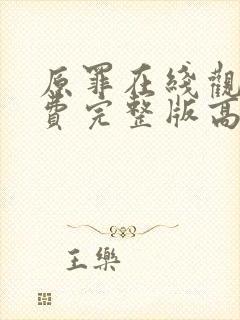 原罪在綫觀
費完整版高
王樂